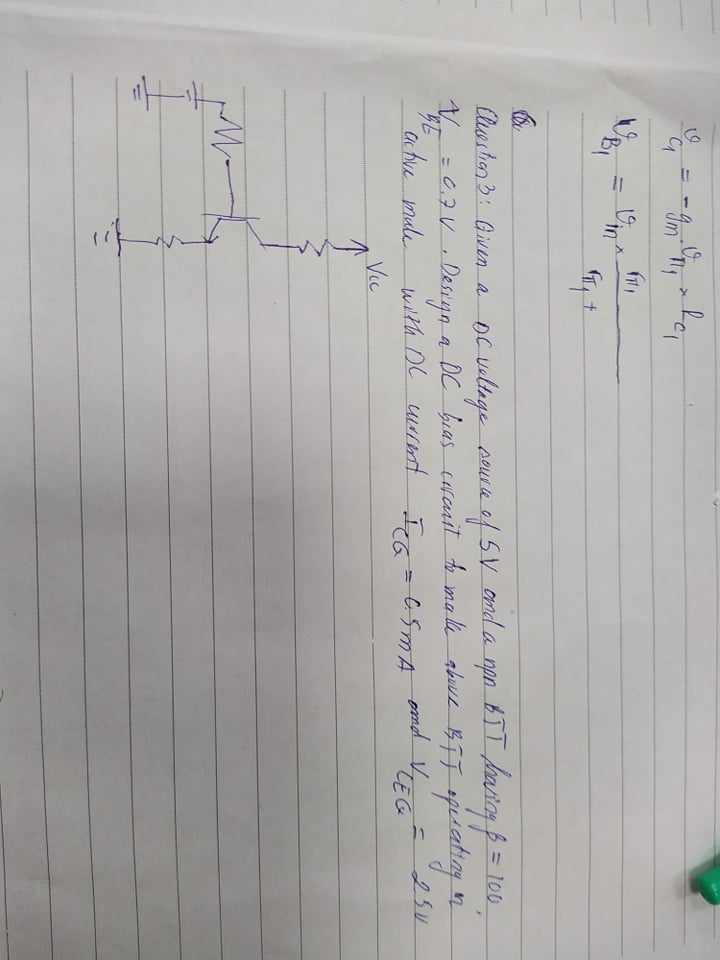 v_C1 = -g_m · v_π1 × R_C1
v_B1 = v_in × r_π1 / r_π1 +
Question 3: Given a DC voltage source of 5V and a npn BJT having β = 100,
V_BE = 0.7V. Design a DC bias circuit to make above BJT operating in
active mode with DC current I_CQ = 0.5mA and V_CEQ = 2.5V
Vcc